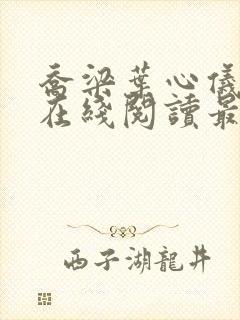 乔梁葉心儀
在綫閱讀最
西子湖龍井